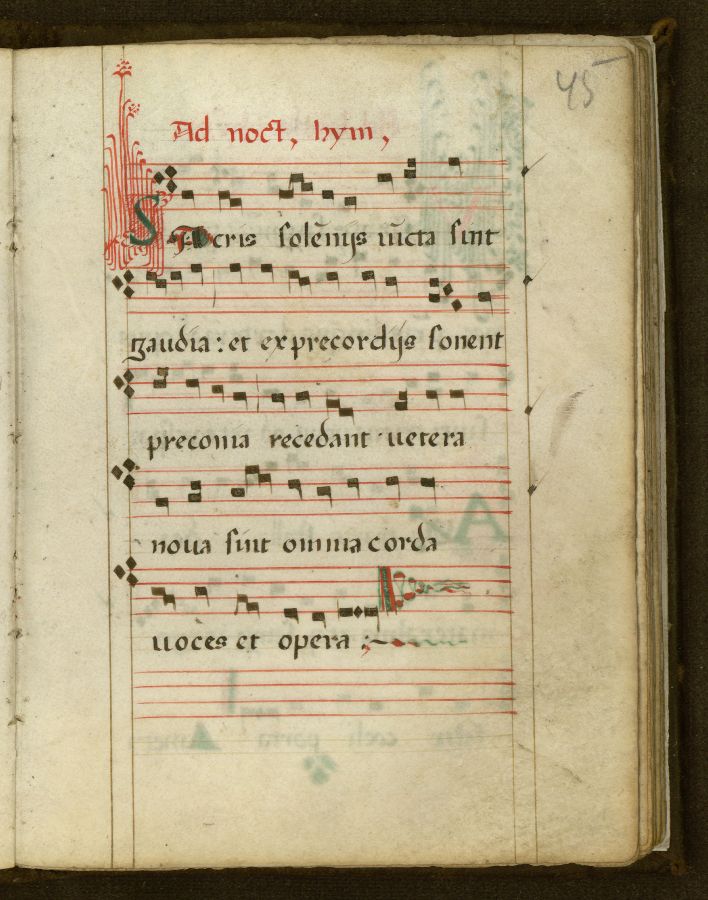 45
Ad noct, hym,
SAcris solēnijs iūcta sint
gaudia : et ex precordijs sonent
preconia recedant uetera
noua sint omnia corda
uoces et opera :